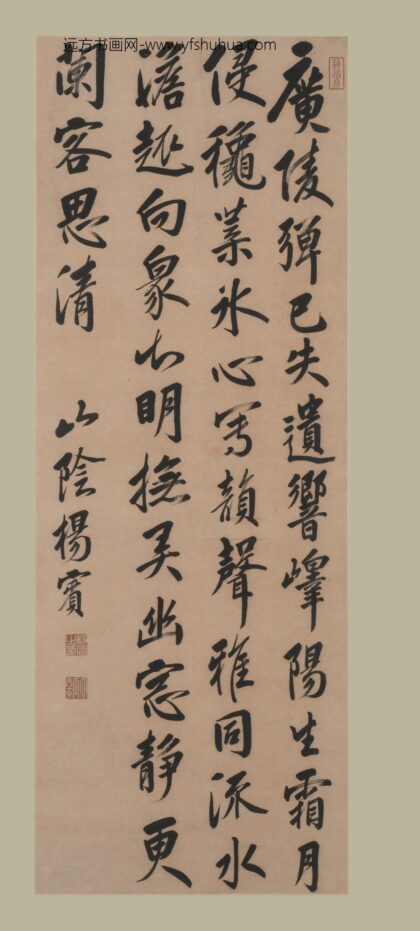 远方书画网-www.yfshuhua.com
廣陵彈已失遺響嶧陽生霜月
侵龝葉氷心寫韻聲雅同流水
澹趣向衆山明撫弄幽窓靜更
闌客思清
山陰楊賓